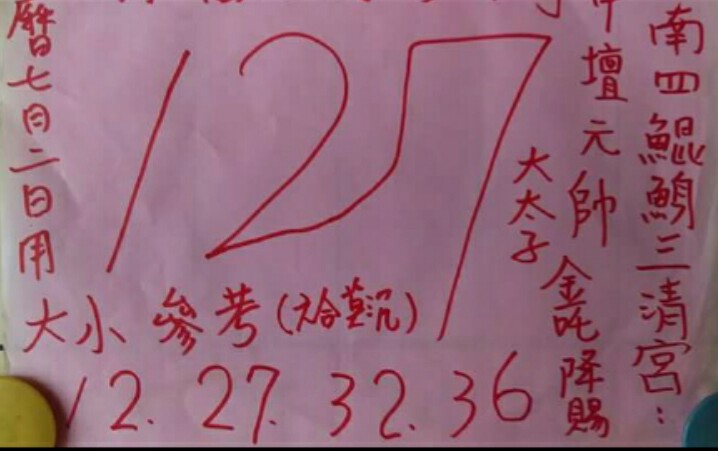 南四鯤鯓三清宮：
壇元帥
大太子
金吒降賜
127
曆七月二日用
大小參考
12. 27. 32. 36